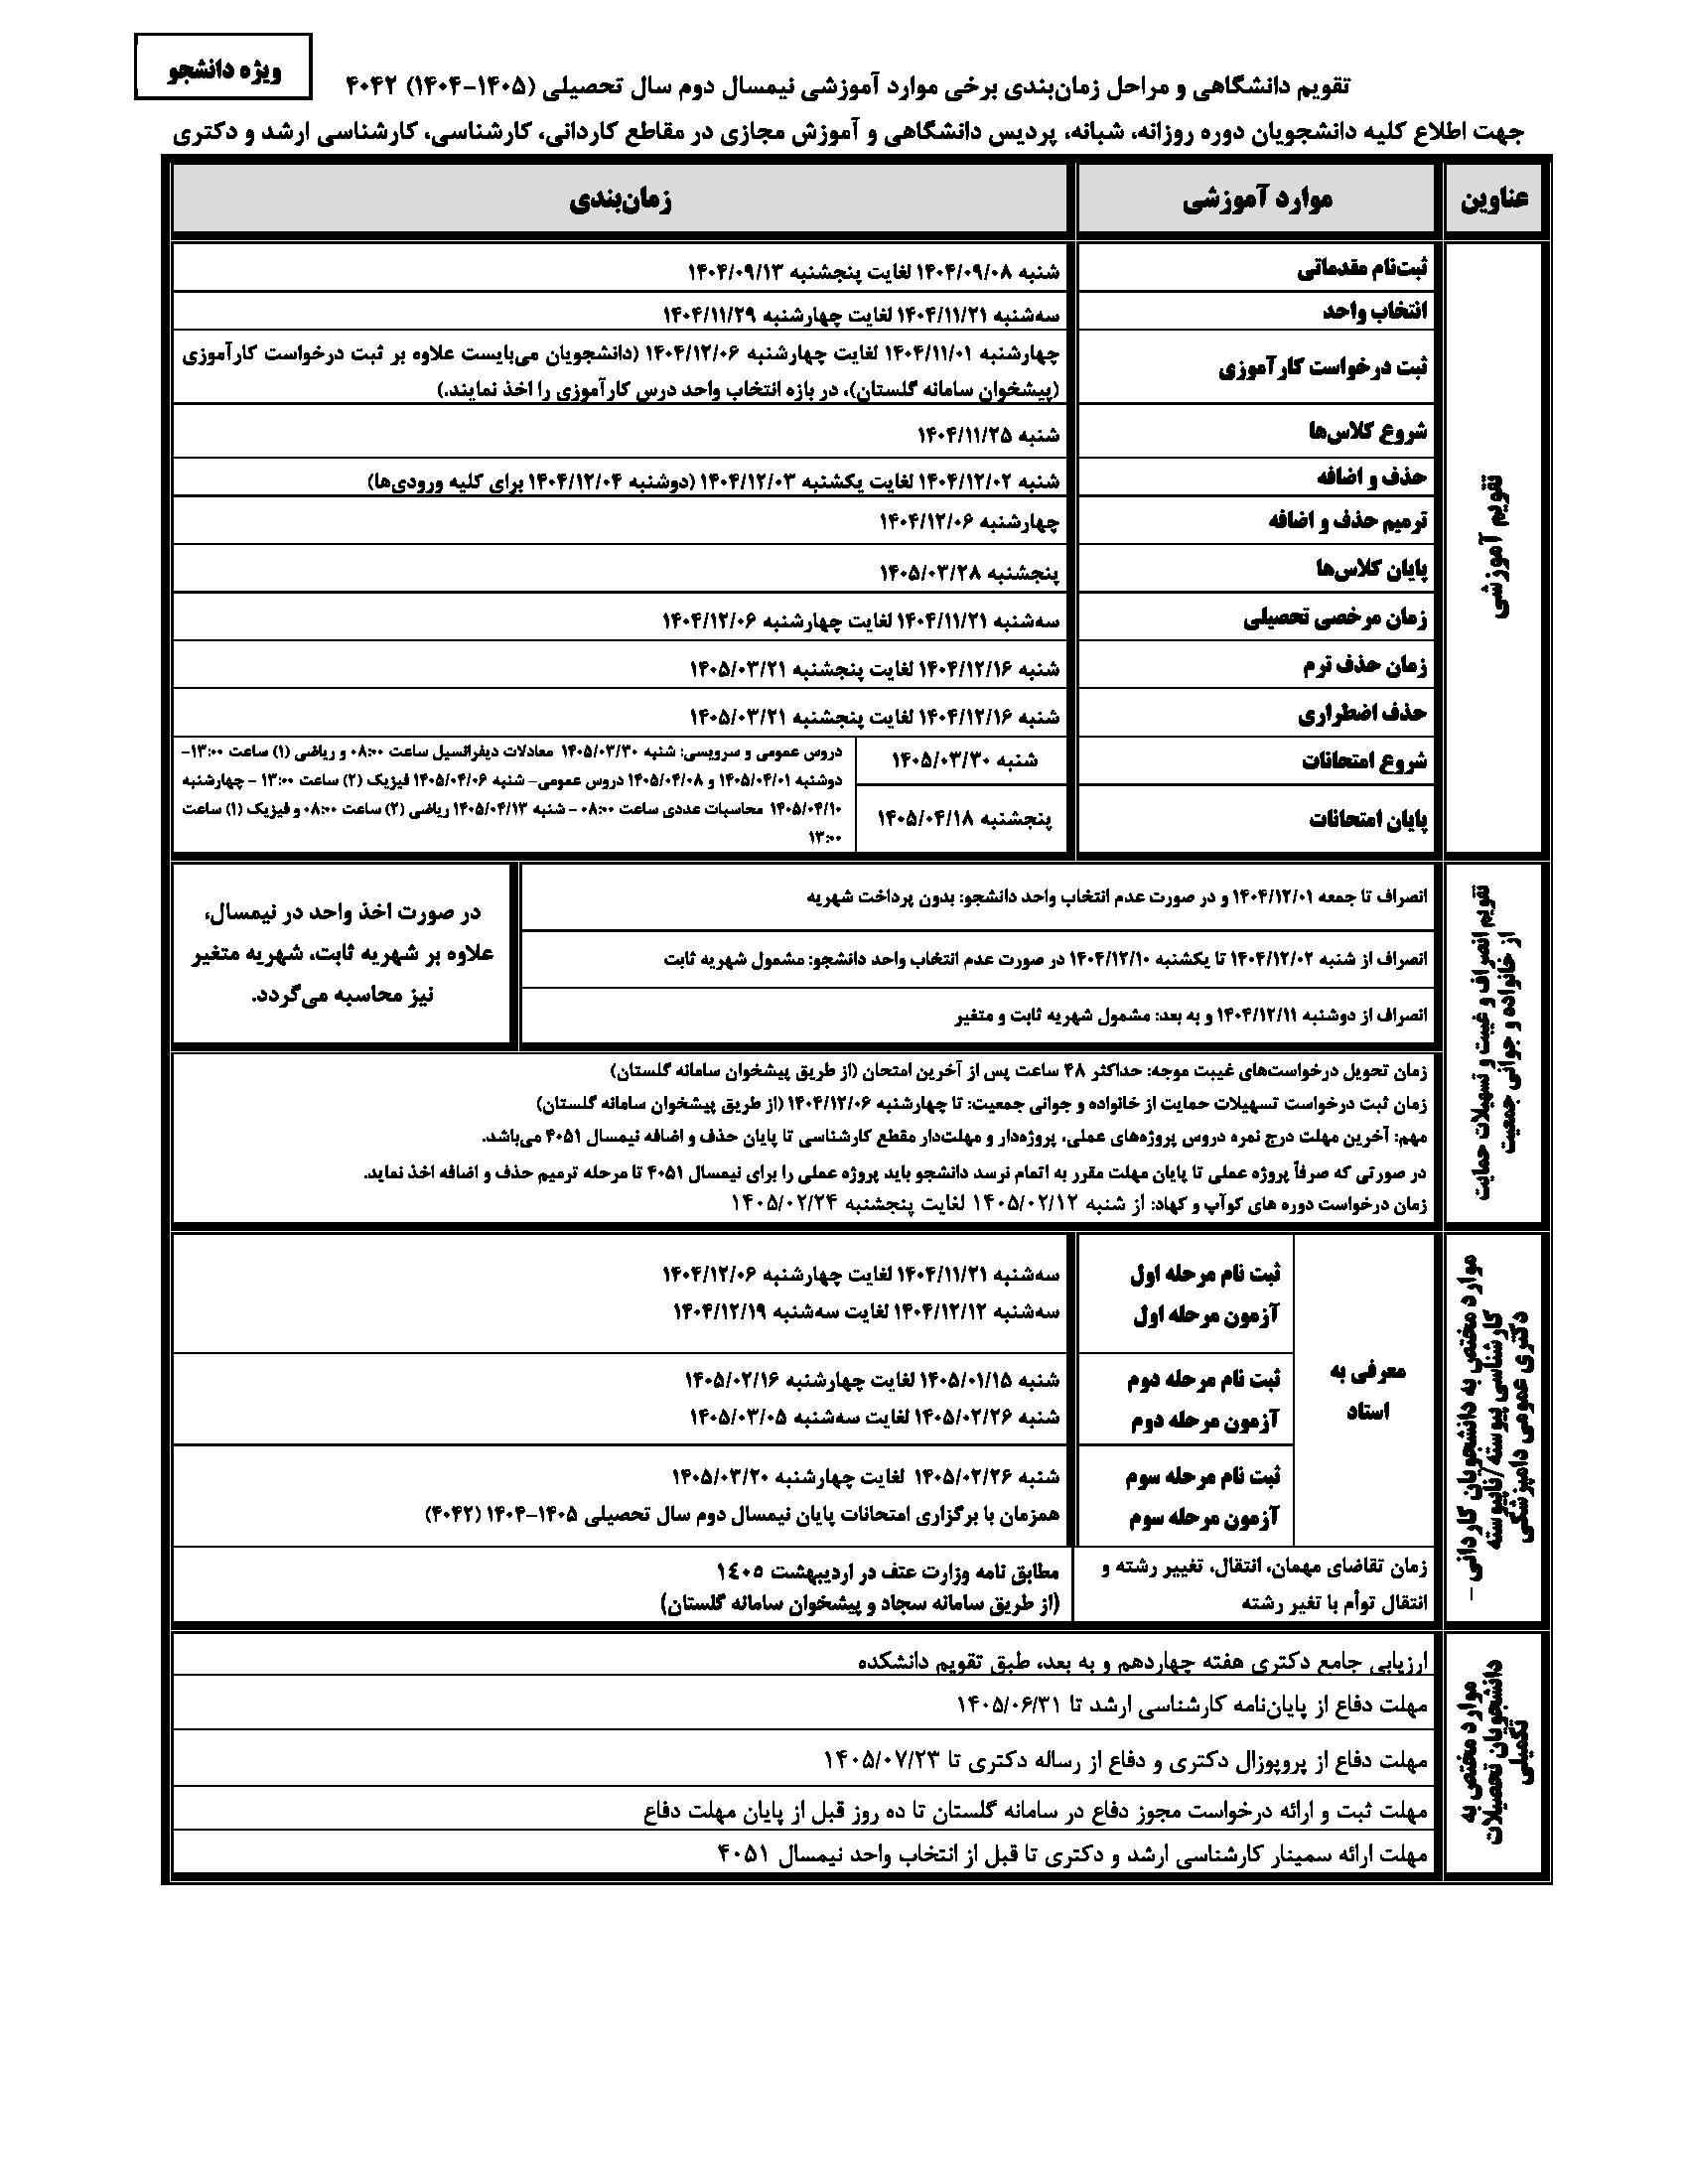 ویژه دانشجو
تقویم دانشگاهی و مراحل زمان‌بندی برخی موارد آموزشی نیمسال دوم سال تحصیلی (۱۴۰۵-۱۴۰۴) ۴۰۴۲
جهت اطلاع کلیه دانشجویان دوره روزانه، شبانه، پردیس دانشگاهی و آموزش مجازی در مقاطع کاردانی، کارشناسی، کارشناسی ارشد و دکتری
عناوین
موارد آموزشی
زمان‌بندی
تقویم آموزشی
ثبت‌نام مقدماتی
شنبه ۱۴۰۴/۰۹/۰۸ لغایت پنجشنبه ۱۴۰۴/۰۹/۱۳
انتخاب واحد
سه‌شنبه ۱۴۰۴/۱۱/۲۱ لغایت چهارشنبه ۱۴۰۴/۱۱/۲۹
ثبت درخواست کارآموزی
چهارشنبه ۱۴۰۴/۱۱/۰۱ لغایت چهارشنبه ۱۴۰۴/۱۲/۰۶ (دانشجویان می‌بایست علاوه بر ثبت درخواست کارآموزی
(پیشخوان سامانه گلستان)، در بازه انتخاب واحد درس کارآموزی را اخذ نمایند.)
شروع کلاس‌ها
شنبه ۱۴۰۴/۱۱/۲۵
حذف و اضافه
شنبه ۱۴۰۴/۱۲/۰۲ لغایت یکشنبه ۱۴۰۴/۱۲/۰۳ (دوشنبه ۱۴۰۴/۱۲/۰۴ برای کلیه ورودی‌ها)
ترمیم حذف و اضافه
چهارشنبه ۱۴۰۴/۱۲/۰۶
پایان کلاس‌ها
پنجشنبه ۱۴۰۵/۰۳/۲۸
زمان مرخصی تحصیلی
سه‌شنبه ۱۴۰۴/۱۱/۲۱ لغایت چهارشنبه ۱۴۰۴/۱۲/۰۶
زمان حذف ترم
شنبه ۱۴۰۴/۱۲/۱۶ لغایت پنجشنبه ۱۴۰۵/۰۳/۲۱
حذف اضطراری
شنبه ۱۴۰۴/۱۲/۱۶ لغایت پنجشنبه ۱۴۰۵/۰۳/۲۱
شروع امتحانات
شنبه ۱۴۰۵/۰۳/۳۰
پایان امتحانات
پنجشنبه ۱۴۰۵/۰۴/۱۸
دروس عمومی و سرویسی: شنبه ۱۴۰۵/۰۳/۳۰ معادلات دیفرانسیل ساعت ۰۸:۰۰ و ریاضی (۱) ساعت ۱۳:۰۰-
دوشنبه ۱۴۰۵/۰۴/۰۱ و ۱۴۰۵/۰۴/۰۸ دروس عمومی– شنبه ۱۴۰۵/۰۴/۰۶ فیزیک (۲) ساعت ۱۳:۰۰ - چهارشنبه
۱۴۰۵/۰۴/۱۰ محاسبات عددی ساعت ۰۸:۰۰ - شنبه ۱۴۰۵/۰۴/۱۳ ریاضی (۲) ساعت ۰۸:۰۰ و فیزیک (۱) ساعت
۱۳:۰۰
تقویم انصراف و غیبت و تسهیلات حمایت
از خانواده و جوانی جمعیت
انصراف تا جمعه ۱۴۰۴/۱۲/۰۱ و در صورت عدم انتخاب واحد دانشجو: بدون پرداخت شهریه
انصراف از شنبه ۱۴۰۴/۱۲/۰۲ تا یکشنبه ۱۴۰۴/۱۲/۱۰ در صورت عدم انتخاب واحد دانشجو: مشمول شهریه ثابت
انصراف از دوشنبه ۱۴۰۴/۱۲/۱۱ و به بعد: مشمول شهریه ثابت و متغیر
در صورت اخذ واحد در نیمسال،
علاوه بر شهریه ثابت، شهریه متغیر
نیز محاسبه می‌گردد.
زمان تحویل درخواست‌های غیبت موجه: حداکثر ۴۸ ساعت پس از آخرین امتحان (از طریق پیشخوان سامانه گلستان)
زمان ثبت درخواست تسهیلات حمایت از خانواده و جوانی جمعیت: تا چهارشنبه ۱۴۰۴/۱۲/۰۶ (از طریق پیشخوان سامانه گلستان)
مهم: آخرین مهلت درج نمره دروس پروژه‌های عملی، پروژه‌دار و مهلت‌دار مقطع کارشناسی تا پایان حذف و اضافه نیمسال ۴۰۵۱ می‌باشد.
در صورتی که صرفاً پروژه عملی تا پایان مهلت مقرر به اتمام نرسد دانشجو باید پروژه عملی را برای نیمسال ۴۰۵۱ تا مرحله ترمیم حذف و اضافه اخذ نماید.
زمان درخواست دوره های کوآپ و کهاد: از شنبه ۱۴۰۵/۰۲/۱۲ لغایت پنجشنبه ۱۴۰۵/۰۲/۲۴
موارد مختص به دانشجویان کاردانی –
کارشناسی پیوسته/ناپیوسته
دکتری عمومی دامپزشکی
معرفی به
استاد
ثبت نام مرحله اول
سه‌شنبه ۱۴۰۴/۱۱/۲۱ لغایت چهارشنبه ۱۴۰۴/۱۲/۰۶
آزمون مرحله اول
سه‌شنبه ۱۴۰۴/۱۲/۱۲ لغایت سه‌شنبه ۱۴۰۴/۱۲/۱۹
ثبت نام مرحله دوم
شنبه ۱۴۰۵/۰۱/۱۵ لغایت چهارشنبه ۱۴۰۵/۰۲/۱۶
آزمون مرحله دوم
شنبه ۱۴۰۵/۰۲/۲۶ لغایت سه‌شنبه ۱۴۰۵/۰۳/۰۵
ثبت نام مرحله سوم
شنبه ۱۴۰۵/۰۲/۲۶ لغایت چهارشنبه ۱۴۰۵/۰۳/۲۰
آزمون مرحله سوم
همزمان با برگزاری امتحانات پایان نیمسال دوم سال تحصیلی ۱۴۰۵-۱۴۰۴ (۴۰۴۲)
زمان تقاضای مهمان، انتقال، تغییر رشته و
انتقال توأم با تغیر رشته
مطابق نامه وزارت عتف در اردیبهشت ۱٤۰٥
(از طریق سامانه سجاد و پیشخوان سامانه گلستان)
موارد مختص به
دانشجویان تحصیلات
تکمیلی
ارزیابی جامع دکتری هفته چهاردهم و به بعد، طبق تقویم دانشکده
مهلت دفاع از پایان‌نامه کارشناسی ارشد تا ۱۴۰۵/۰۶/۳۱
مهلت دفاع از پروپوزال دکتری و دفاع از رساله دکتری تا ۱۴۰۵/۰۷/۲۳
مهلت ثبت و ارائه درخواست مجوز دفاع در سامانه گلستان تا ده روز قبل از پایان مهلت دفاع
مهلت ارائه سمینار کارشناسی ارشد و دکتری تا قبل از انتخاب واحد نیمسال ۴۰۵۱